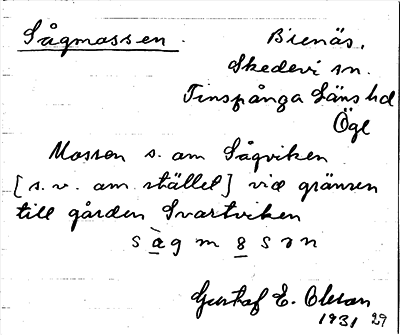 Sågmossen. Bienäs.
Skedevi sn.
Finspånga läns hd
Ögl
Mossen s. om Sågviken
[s. v. om stället] vid gränsen
till gården Svartviken
sàgmosən
Gustaf E. Olsson
1931 29